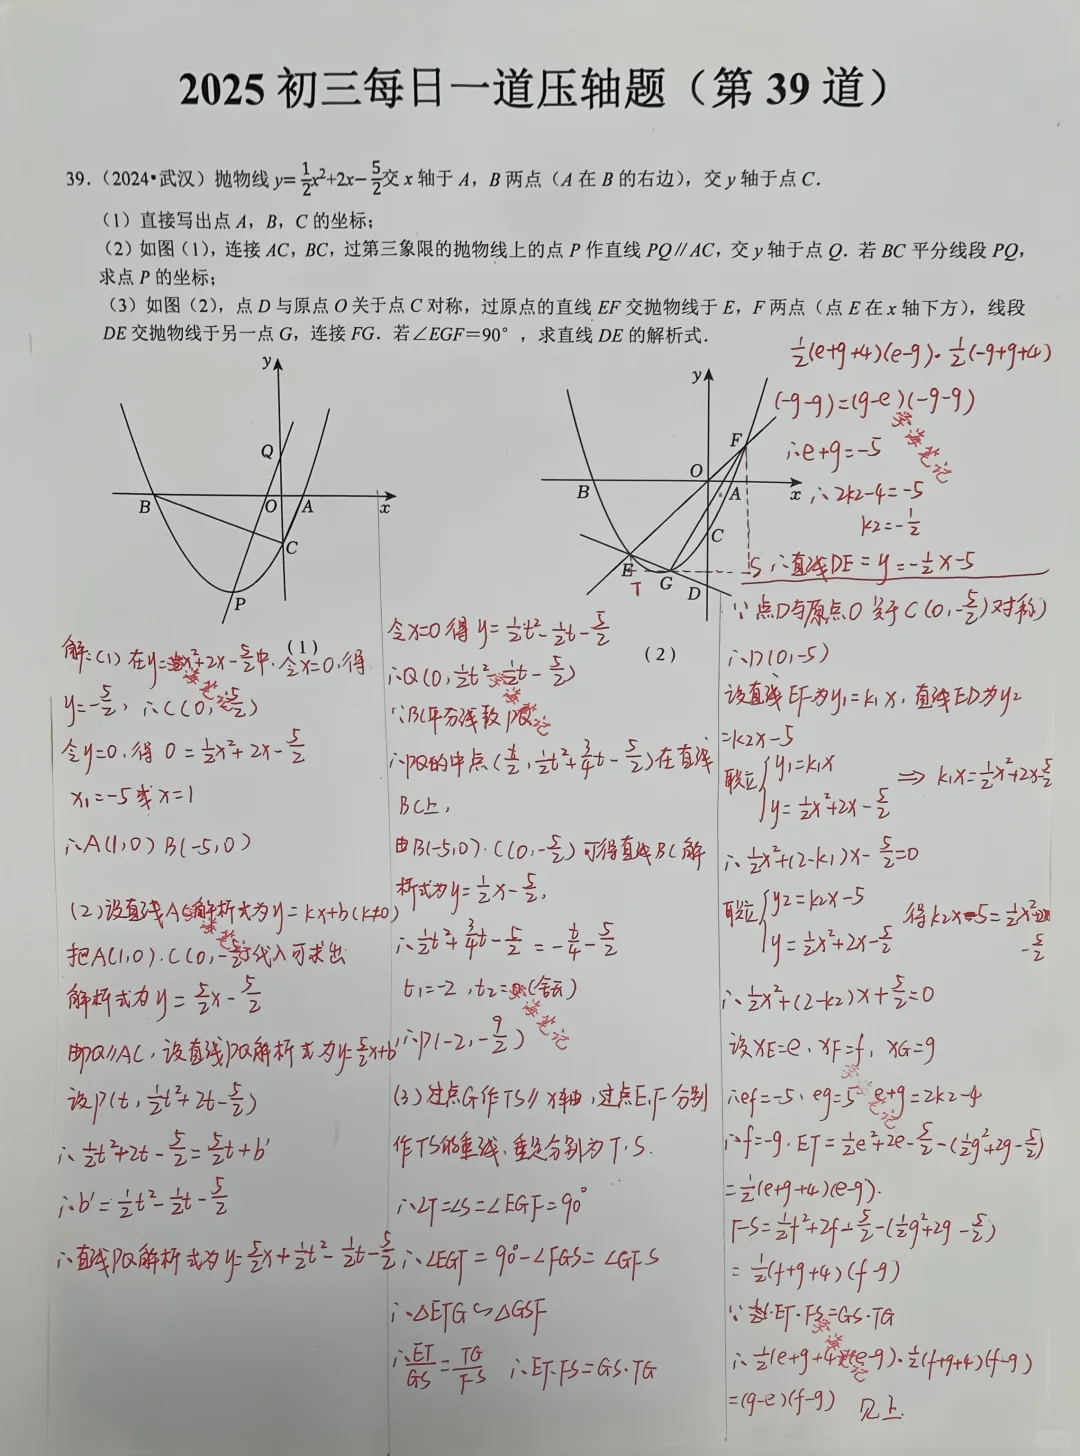 2025 初三每日一道压轴题（第 39 道）
39.（2024•武汉）抛物线 y=1/2x²+2x−5/2交 x 轴于 A，B 两点（A 在 B 的右边），交 y 轴于点 C．
（1）直接写出点 A，B，C 的坐标；
（2）如图（1），连接 AC，BC，过第三象限的抛物线上的点 P 作直线 PQ∥AC，交 y 轴于点 Q．若 BC 平分线段 PQ，
求点 P 的坐标；
（3）如图（2），点 D 与原点 O 关于点 C 对称，过原点的直线 EF 交抛物线于 E，F 两点（点 E 在 x 轴下方），线段
DE 交抛物线于另一点 G，连接 FG．若∠EGF=90°，求直线 DE 的解析式．
y
Q
B
O
A
x
C
P
（1）
y
F
O
B
A
x
C
E
G
D
T
S
（2）
解:(1) 在y=1/2x²+2x-5/2中,令x=0,得
y=-5/2, ∴C(0,-5/2)
令y=0,得 0=1/2x²+2x-5/2
x₁=-5或x=1
∴A(1,0) B(-5,0)
(2)设直线AC解析式为y=kx+b(k≠0)
把A(1,0).C(0,-5/2)代入可求出
解析式为y=5/2x-5/2
由PQ∥AC,设直线PQ解析式为y=5/2x+b'
设P(t,1/2t²+2t-5/2)
∴1/2t²+2t-5/2=5/2t+b'
∴b'=1/2t²-1/2t-5/2
∴直线PQ解析式为y=5/2x+1/2t²-1/2t-5/2
令x=0得y=1/2t²-1/2t-5/2
∴Q(0,1/2t²-1/2t-5/2)
∵BC平分线段PQ
∴PQ的中点(t/2,1/2t²+3/4t-5/2)在直线
BC上,
由B(-5,0).C(0,-5/2)可得直线BC解
析式为y=-1/2x-5/2,
∴1/2t²+3/4t-5/2=-t/4-5/2
t₁=-2,t₂=0(舍去)
∴P(-2,-9/2)
(3)过点G作TS∥x轴,过点E,F分别
作TS的垂线,垂足分别为T.S.
∴∠T=∠S=∠EGF=90°
∴∠EGT=90°-∠FGS=∠GFS
∴△ETG∽△GSF
∴ET/GS=TG/FS ∴ET·FS=GS·TG
∵点D与原点O关于C(0,-5/2)对称)
∴D(0,-5)
设直线EF为y₁=k₁x,直线ED为y2
=k2x-5
联立{y₁=k₁x
y=1/2x²+2x-5/2 ⇒ k₁x=1/2x²+2x-5/2
∴1/2x²+(2-k₁)x-5/2=0
联立{y2=k2x-5
y=1/2x²+2x-5/2 得k2x-5=1/2x²+2x-5/2
∴1/2x²+(2-k2)x+5/2=0
设xE=e,xF=f,xG=g
∴ef=-5,eg=5 e+g=2k2-4
∴f=-g.ET=1/2e²+2e-5/2-(1/2g²+2g-5/2)
=1/2(e+g+4)(e-g).
FS=1/2f²+2f-5/2-(1/2g²+2g-5/2)
=1/2(f+g+4)(f-g)
∵ET·FS=GS·TG
∴1/2(e+g+4)(e-g)·1/2(f+g+4)(f-g)
=(g-e)(f-g) 见上.
1/2(e+g+4)(e-g)·1/2(-g+g+4)
(-g-g)=(g-e)(-g-g)
∴e+g=-5
∴2k2-4=-5
k2=-1/2
∴直线DE=y=-1/2x-5
学海笔记
学海笔记
学海笔记
学海笔记
学海笔记
学海笔记
学海笔记